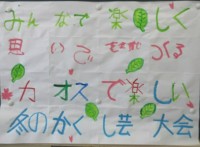 みんなで楽しく
思いで　つくる
カオスで楽しい
冬のかくし芸大会